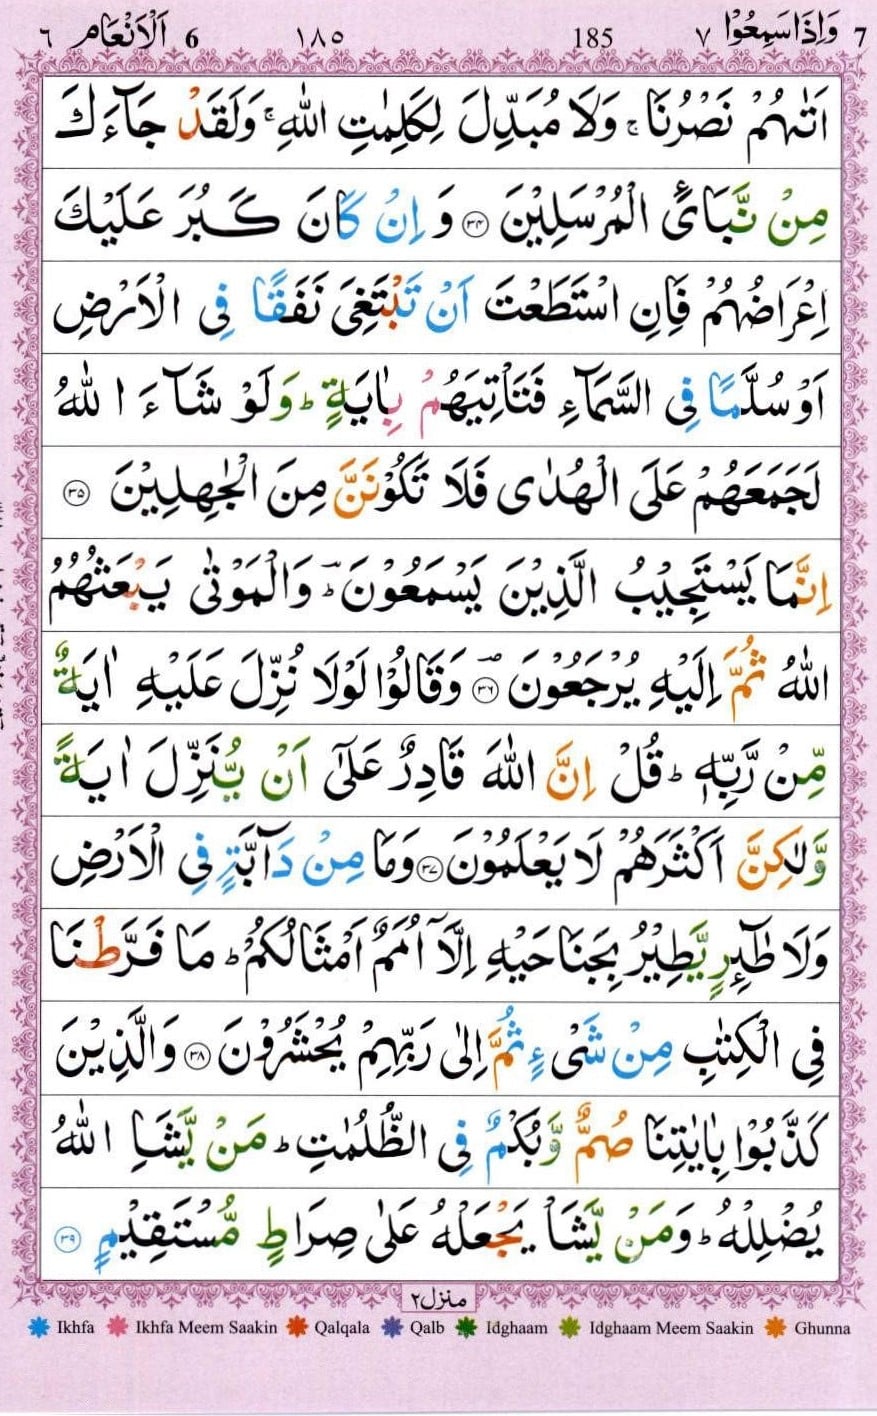 ٦ اَلْاَنْعَام 6 ١٨٥ 185 ٧ وَاِذَا سَمِعُوْا 7
اَتٰىهُمْ نَصْرُنَا ۚ وَلَا مُبَدِّلَ لِكَلِمٰتِ اللّٰهِ ۚ وَلَقَدْ جَآءَكَ
مِنْ نَّبَاِئ الْمُرْسَلِيْنَ ﴿۳۴﴾ وَ اِنْ كَانَ كَبُرَ عَلَيْكَ
اِعْرَاضُهُمْ فَاِنِ اسْتَطَعْتَ اَنْ تَبْتَغِىَ نَفَقًا فِى الْاَرْضِ
اَوْ سُلَّمًا فِى السَّمَآءِ فَتَاْتِيَهُمْ بِاٰيَةٍ ؕ وَلَوْ شَآءَ اللّٰهُ
لَجَمَعَهُمْ عَلَى الْهُدٰى فَلَا تَكُوْنَنَّ مِنَ الْجٰهِلِيْنَ ﴿۳۵﴾
اِنَّمَا يَسْتَجِيْبُ الَّذِيْنَ يَسْمَعُوْنَ ؕؔ وَالْمَوْتٰى يَبْعَثُهُمُ
اللّٰهُ ثُمَّ اِلَيْهِ يُرْجَعُوْنَ ﴿۳۶﴾ؔ وَقَالُوْا لَوْلَا نُزِّلَ عَلَيْهِ اٰيَةٌ
مِّنْ رَّبِّهٖ ؕ قُلْ اِنَّ اللّٰهَ قَادِرٌ عَلٰٓى اَنْ يُّنَزِّلَ اٰيَةً
وَّلٰكِنَّ اَكْثَرَهُمْ لَا يَعْلَمُوْنَ ﴿۳۷﴾ وَمَا مِنْ دَآبَّةٍ فِى الْاَرْضِ
وَلَا طٰٓئِرٍ يَّطِيْرُ بِجَنَاحَيْهِ اِلَّاۤ اُمَمٌ اَمْثَالُكُمْ ؕ مَا فَرَّطْنَا
فِى الْكِتٰبِ مِنْ شَىْءٍ ثُمَّ اِلٰى رَبِّهِمْ يُحْشَرُوْنَ ﴿۳۸﴾ وَالَّذِيْنَ
كَذَّبُوْا بِاٰيٰتِنَا صُمٌّ وَّبُكْمٌ فِى الظُّلُمٰتِ ؕ مَنْ يَّشَاِ اللّٰهُ
يُضْلِلْهُ ؕ وَمَنْ يَّشَاْ يَجْعَلْهُ عَلٰى صِرَاطٍ مُّسْتَقِيْمٍ ﴿۳۹﴾
منزل ٢
Ikhfa Ikhfa Meem Saakin Qalqala Qalb Idghaam Idghaam Meem Saakin Ghunna